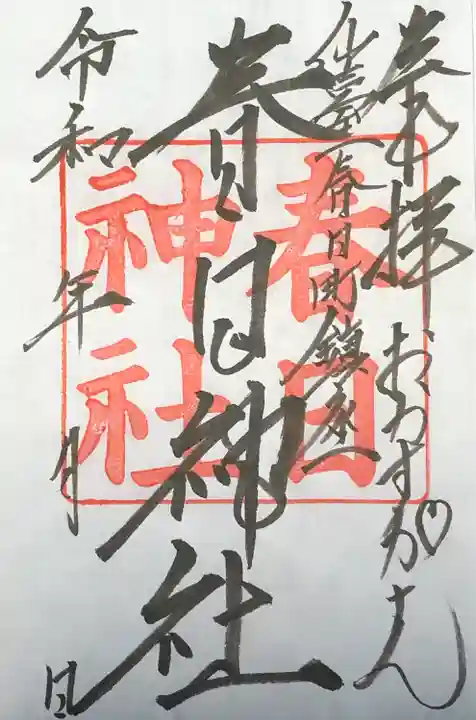 奉拝 おかすがさん
仙臺春日町鎮座
春日神社
令和 年 月 日
春日
神社